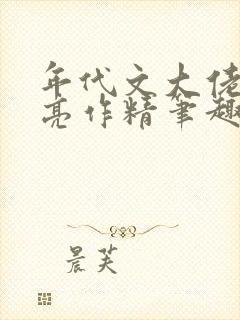 年代文大佬
亮作精筆趣
晨芙